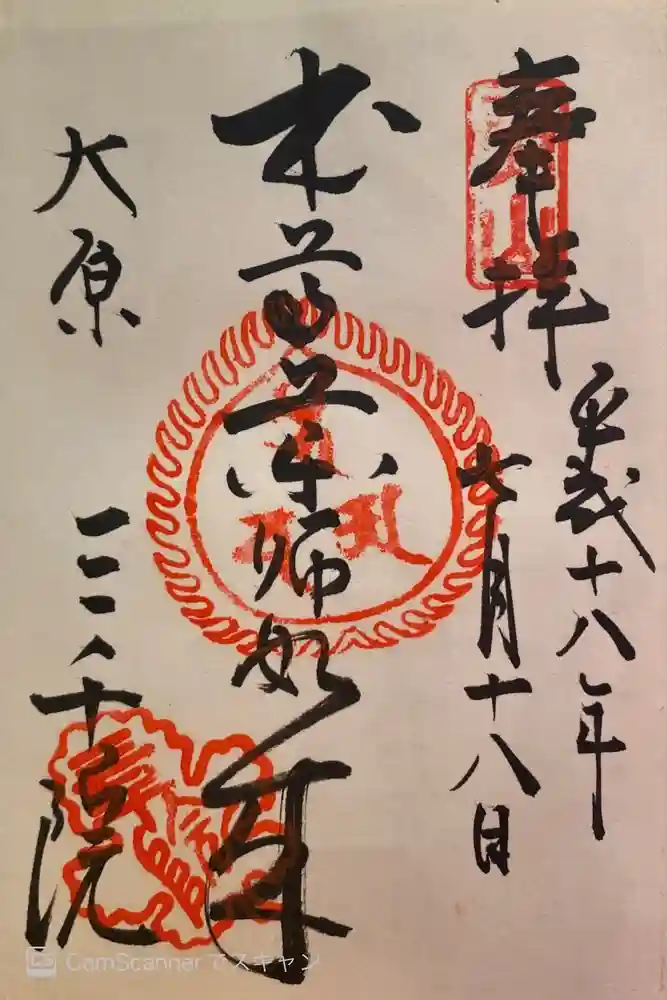 奉拝
平成十八年
七月十八日
本尊薬師如来
大原
三千院
CamScannerでスキャン